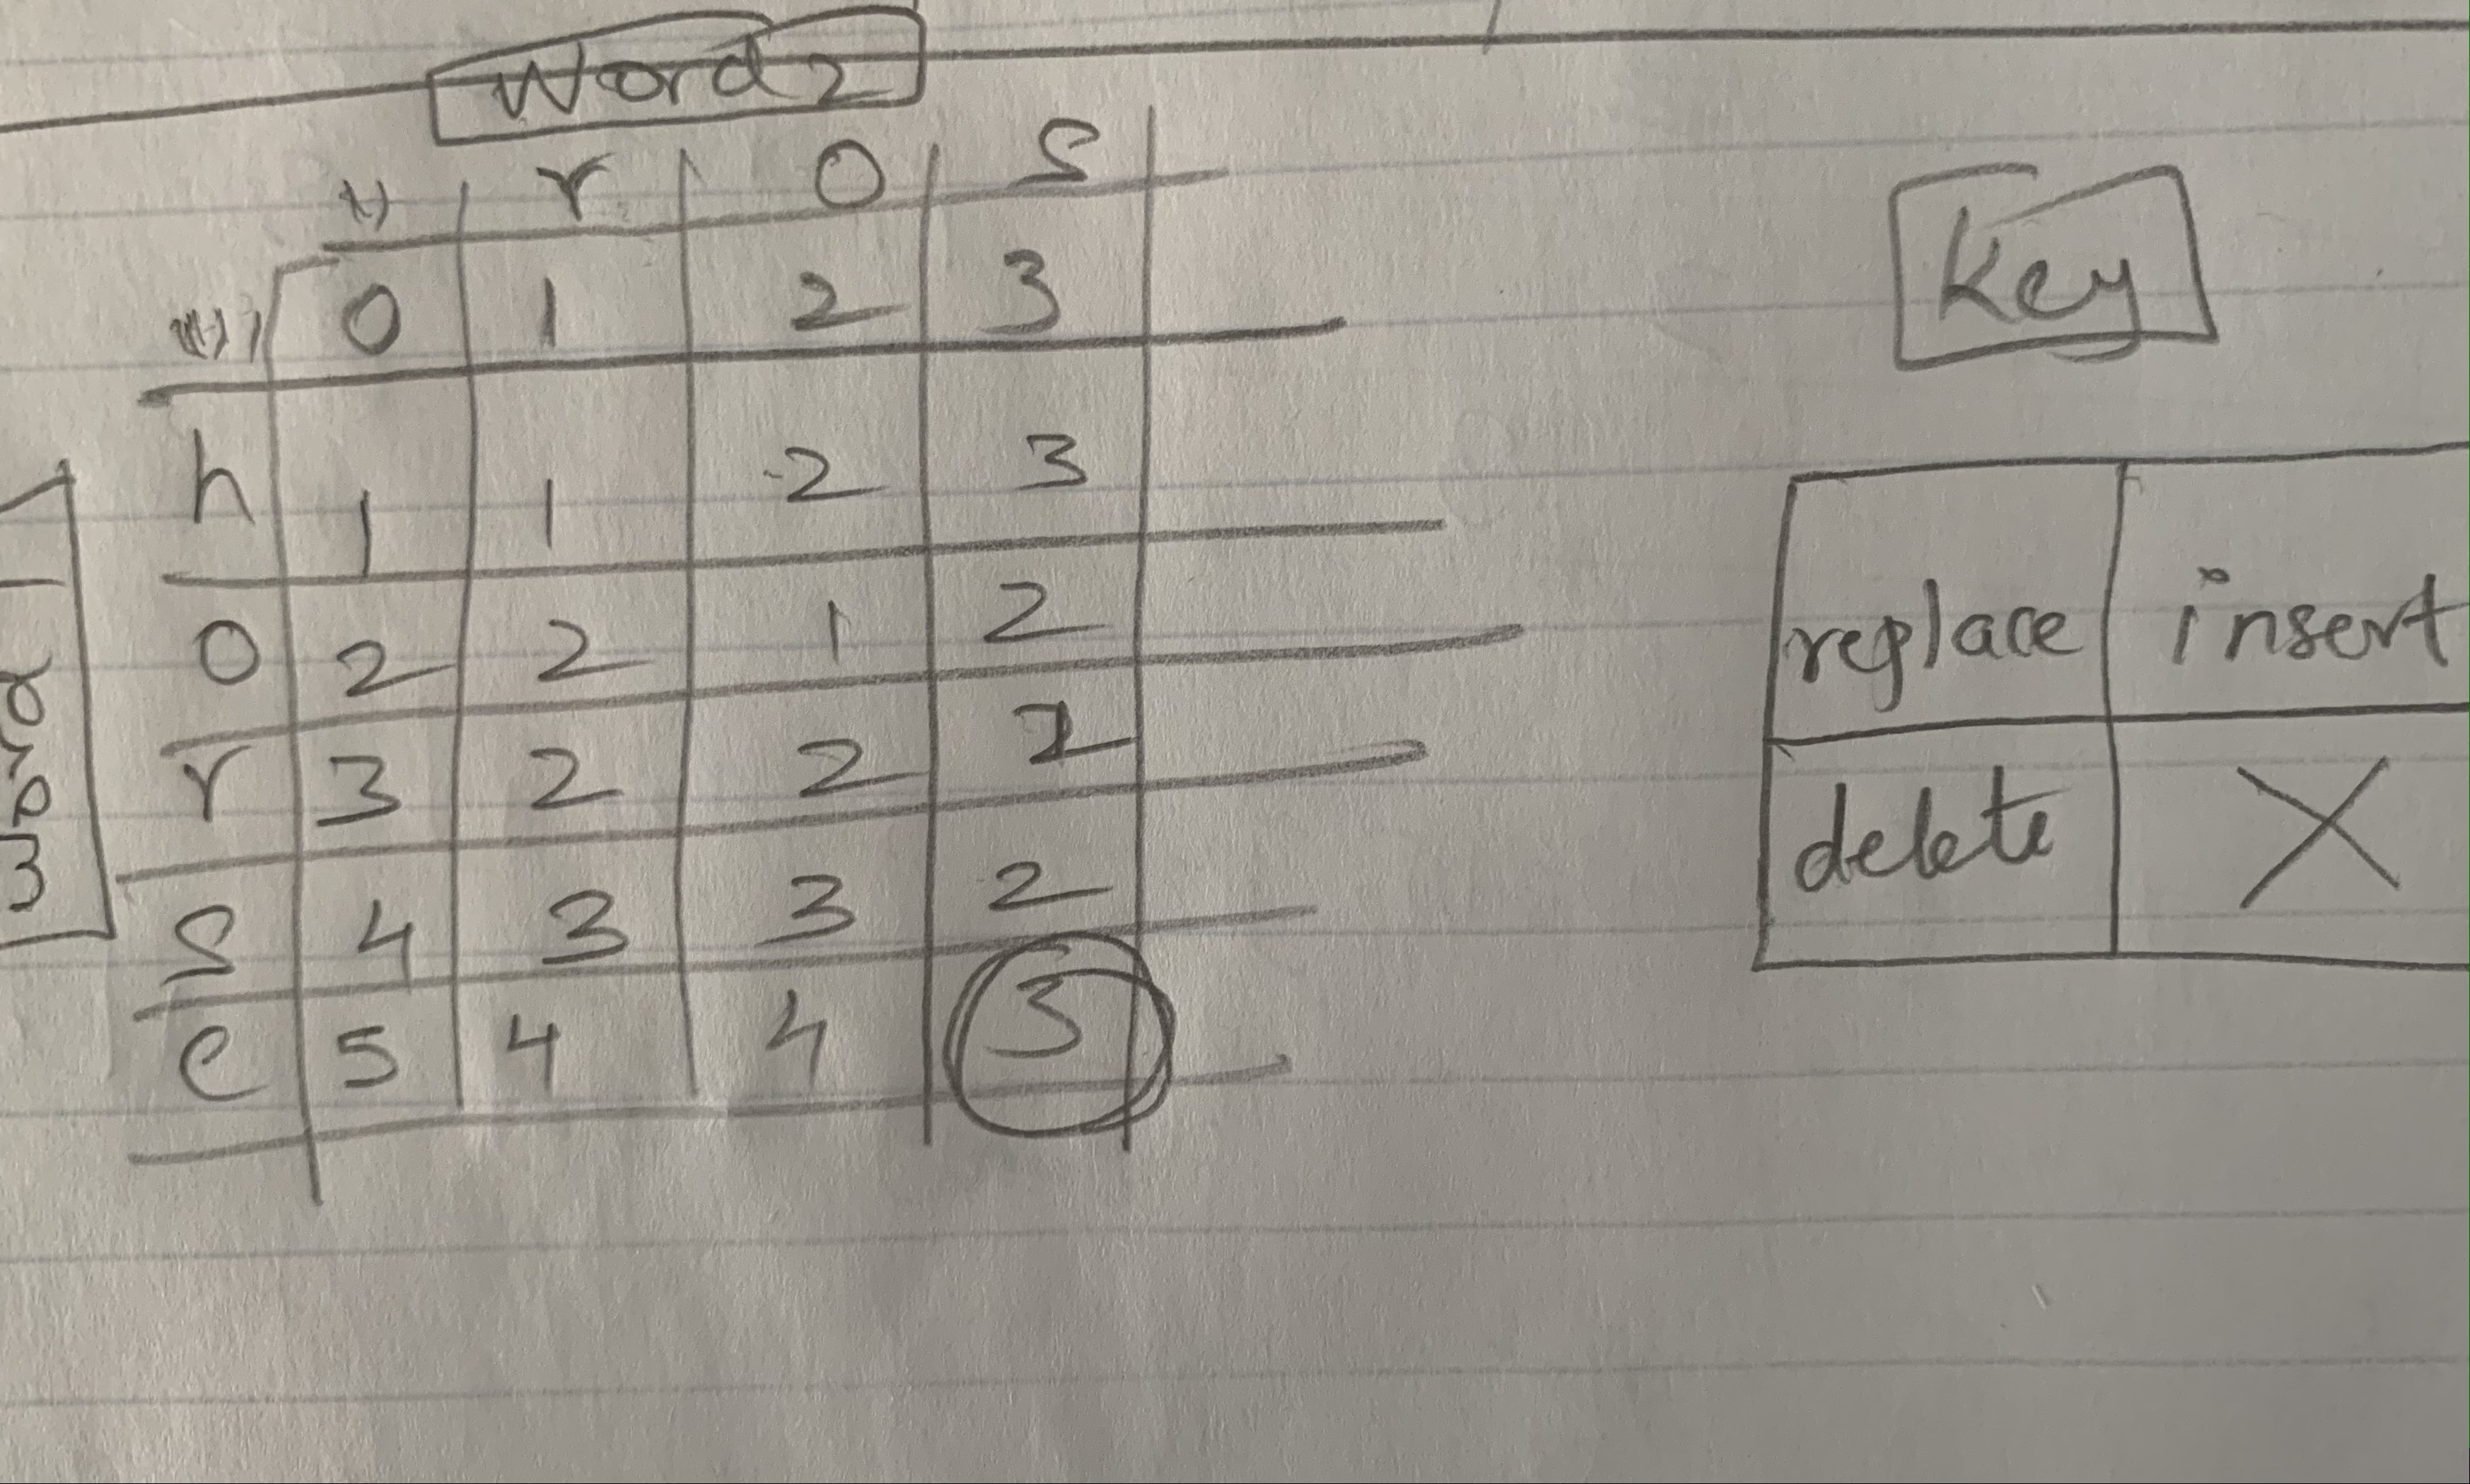 Word 2
" r o s
" 0 1 2 3
h 1 1 2 3
o 2 2 1 2
r 3 2 2 2
s 4 3 3 2
e 5 4 4 3
Word 1
Key
replace insert
delete X